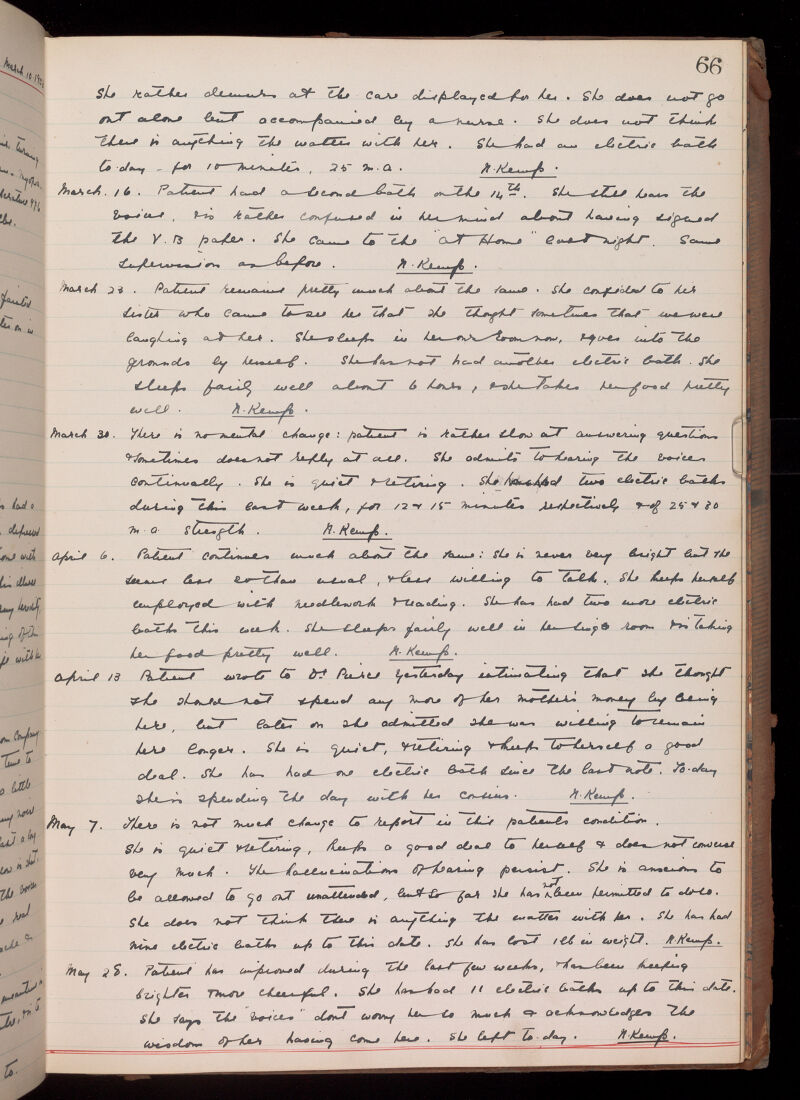 66
She rather demurs at the care displayed for her. She does not go
out alone but accompanied by a nurse. She does not think
there is anything the matter with her. She had an electric bath
to-day - for 10 minutes, 25 m.a. N. Kemp.
March. 16. Patient had a second bath on the 14th. She still hears the
voices, & is rather confused in her mind about having signed
the V.B paper. She came to the "at Home" last night. Same
supervision as before. N. Kemp.
March 23. Patient remains pretty much about the same. She confided to her
sister who came to see her that she thought sometimes that we were
laughing at her. She sleeps in her own room now, & goes into the
grounds by herself. She has not had another electric bath. She
sleeps fairly well about 6 hours, & she takes her food pretty
well. N. Kemp.
March 30. There is no mental change: patient is rather slow at answering questions
& sometimes does not reply at all. She admits to hearing the voices
continually. She is quiet & retiring. She had two electric baths
during this last week, for 12 & 15 minutes respectively & of 25 & 30
m.a. strength. N. Kemp.
April 6. Patient continues much about the same: she is never very bright but she
seems less so than usual, & less willing to talk. She keeps herself
employed with needlework & reading. She has had two more electric
baths this week. She sleeps fairly well in her single room & is taking
her food pretty well. N. Kemp.
April 13 Patient wrote to Dr. Pierce yesterday intimating that she thought
she should not spend any more of her mother's money by being
here, but later on she admitted she was willing to remain
here longer. She is quiet, & retiring & keeps to herself a good
deal. She has had one electric bath since the last note. To-day
she is spending the day with her cousins. N. Kemp.
May 7. There is not much change to report in this patients condition.
She is quiet & retiring, keeps a good deal to herself & does not converse
very much. The hallucinations of hearing persist. She is anxious to
be allowed to go out unattended, but so far she has not been permitted to do so.
She does not think there is anything the matter with her. She has had
nine electric baths up to this date. She has lost 1 lb in weight. N. Kemp.
May 28. Patient has improved during the last few weeks, & has been keeping
brighter & more cheerful. She has had 11 electric baths up to this date.
She says the "voices" dont worry her so much & acknowledges the
wisdom of her having come here. She left to-day. N. Kemp.